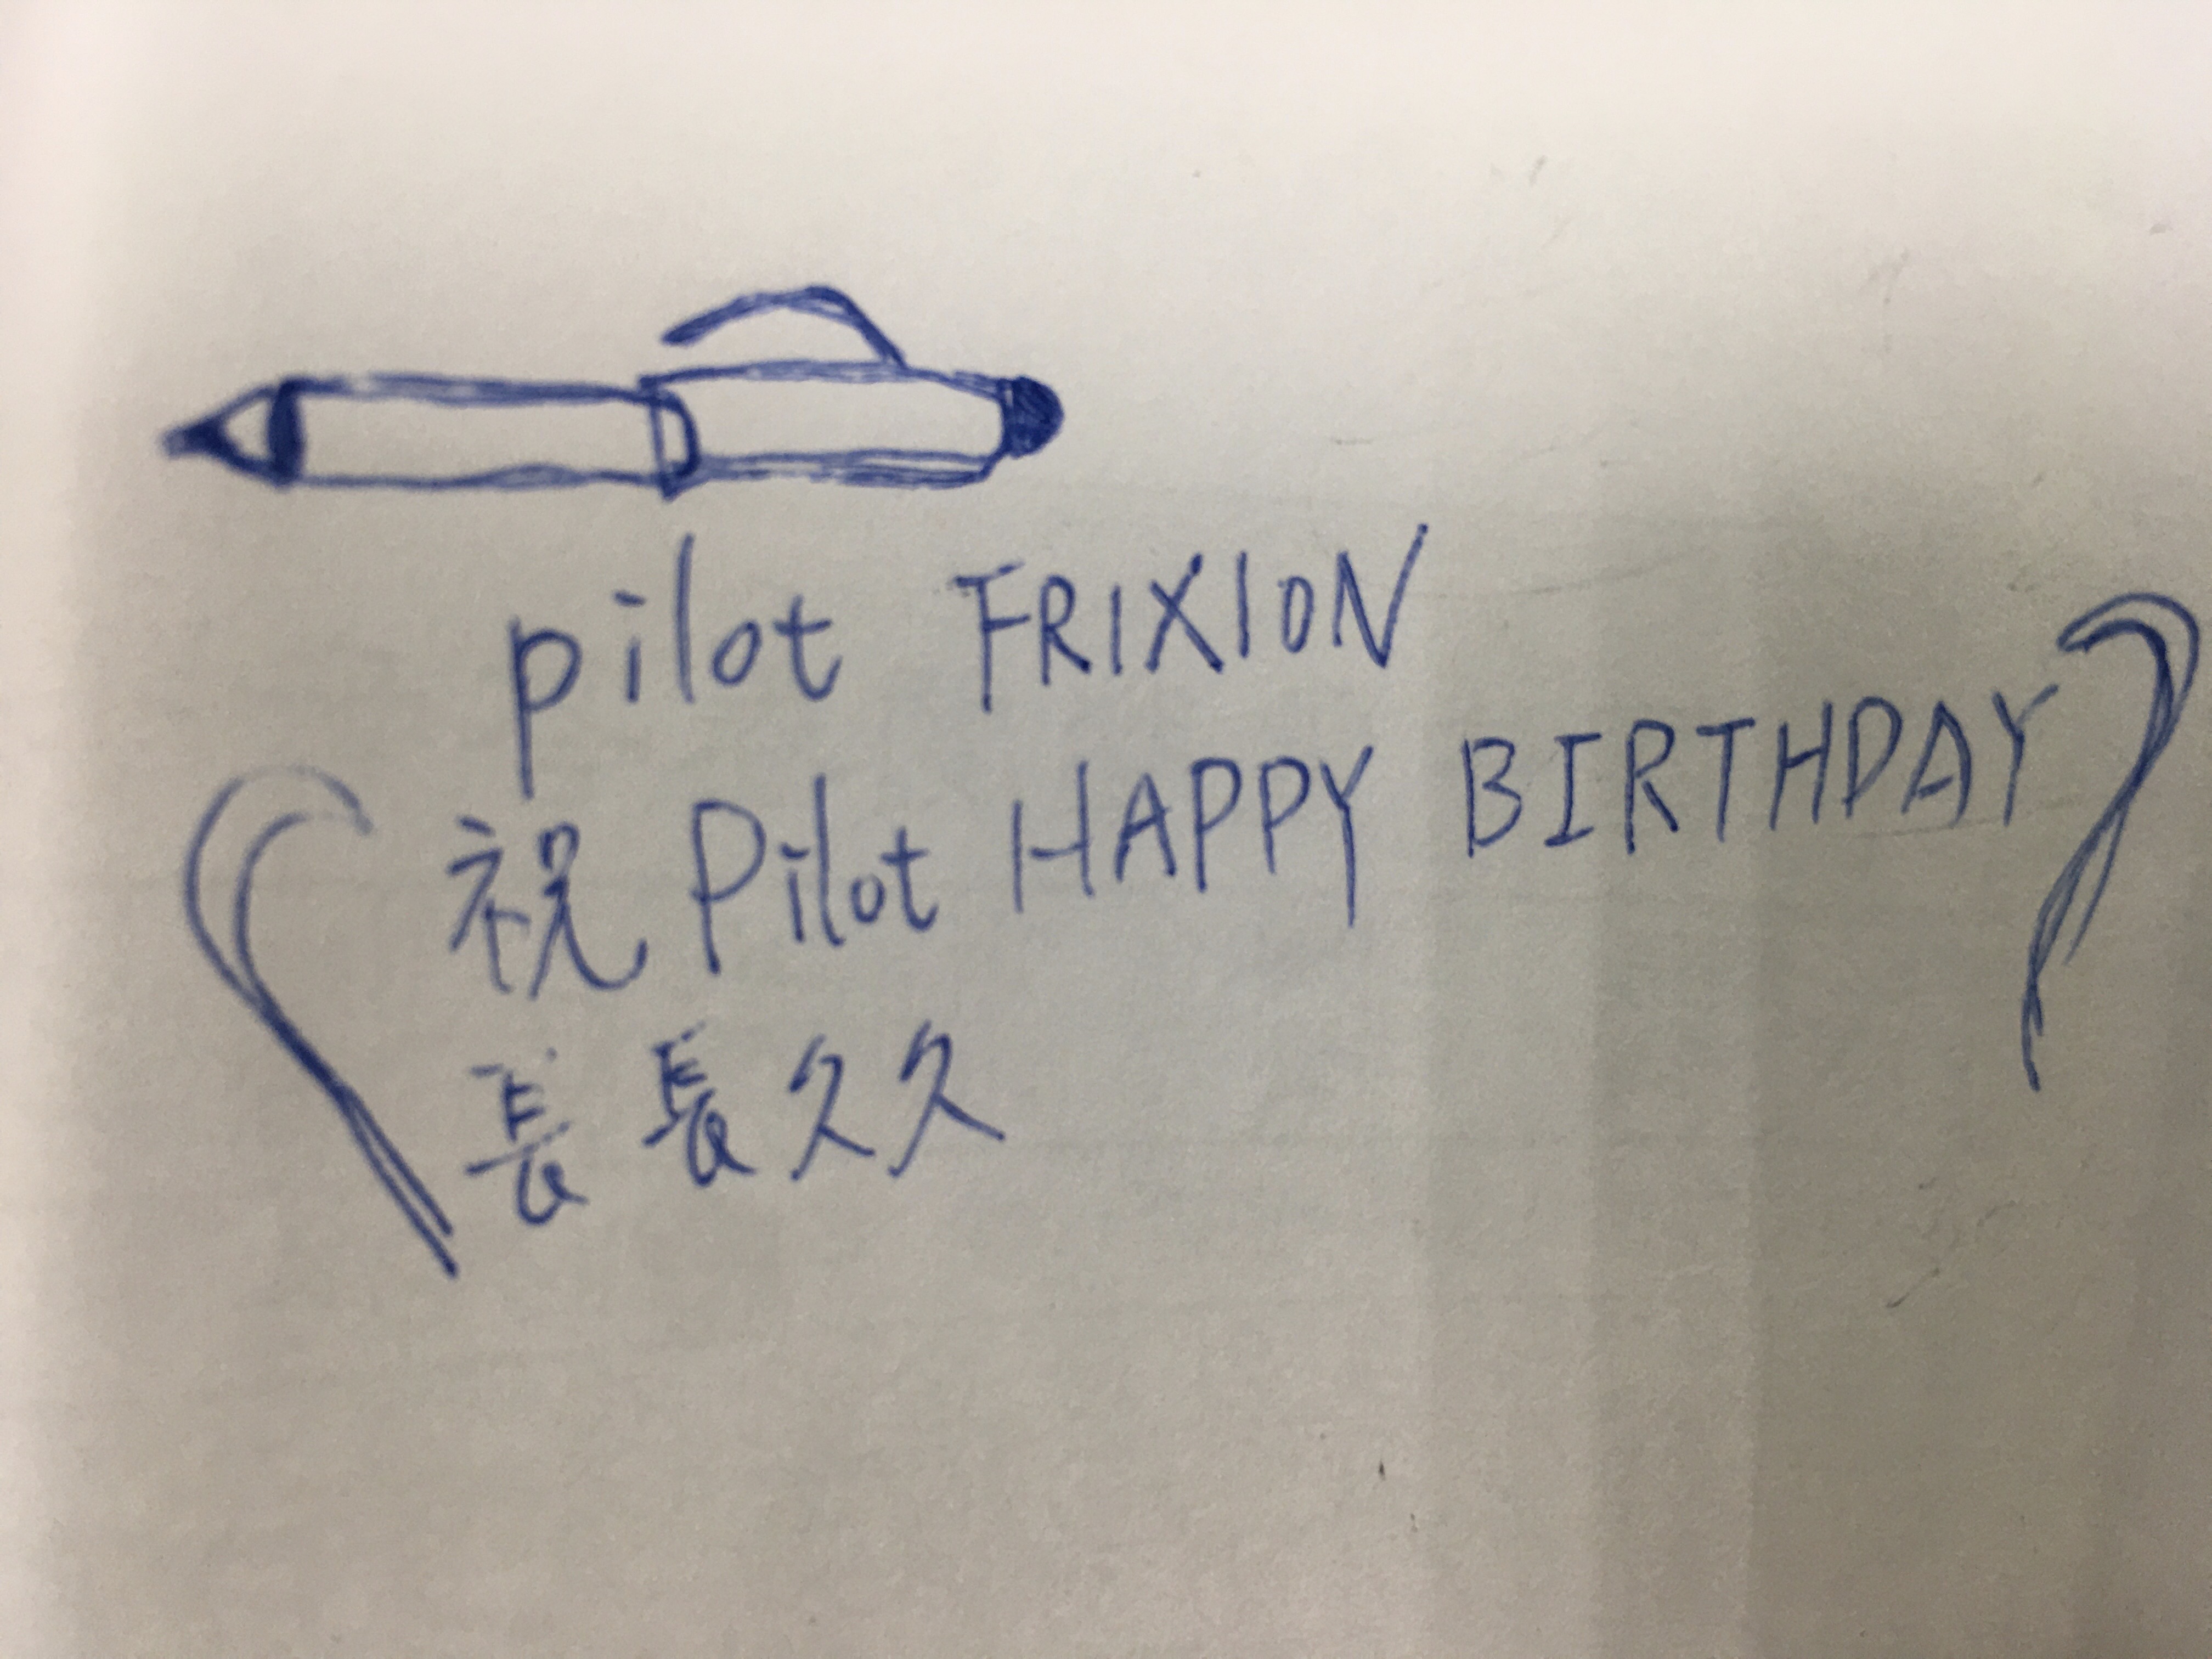 pilot FRIXION
祝 Pilot HAPPY BIRTHDAY
長長久久